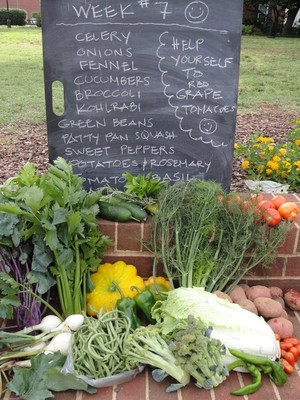 WEEK #7
CELERY
ONIONS
FENNEL
CUCUMBERS
BROCCOLI
KOHLRABI
GREEN BEANS
PATTY PAN SQUASH
SWEET PEPPERS
POTATOES / ROSEMARY
TOMATO BASIL
HELP
YOURSELF
TO
RED
GRAPE
TOMATOES